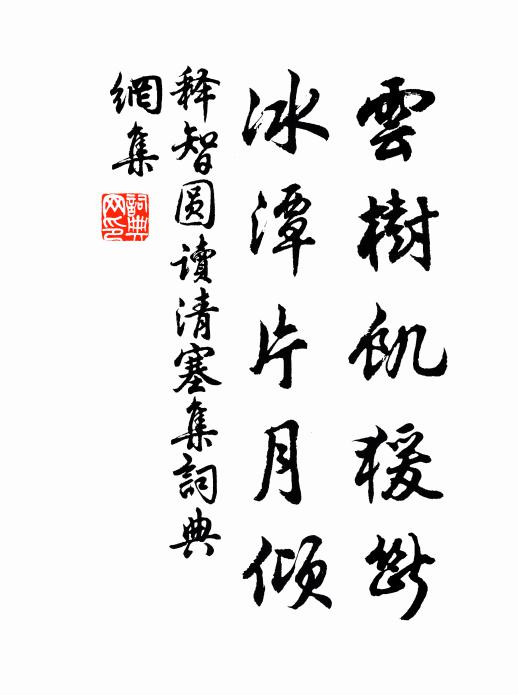 雲樹飢猨斷
冰潭片月傾
释智圆讀清塞集詞典
網集
詞典網印